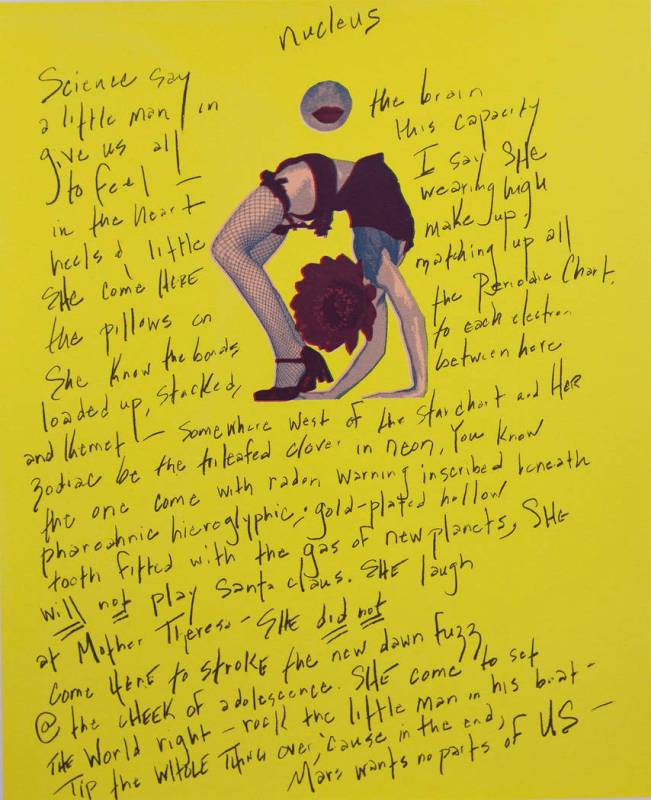 nucleus
Science say
a little man in the brain
give us all this capacity
to feel — I say SHE
in the heart wearing high
heels & little make up.
SHE come HERE matching up all
the pillows on the Periodic Chart.
She know the bonds to each electron
loaded up, stacked, between here
and Khemet — somewhere West of the star chart and HER
zodiac be the trileafed clover in neon. You know
the one come with radon warning inscribed beneath
pharoahnic hieroglyphic; gold-plated hollow
tooth fitted with the gas of new planets, SHE
will not play Santa Claus. SHE laugh
at Mother Theresa — SHE did not
come HERE to stroke the new dawn fuzz
@ the CHEEK of adolescence. SHE come to set
THE World right — rock the little man in his boat —
Tip the WHOLE THING over, 'cause in the end,
Mars wants no parts of US —